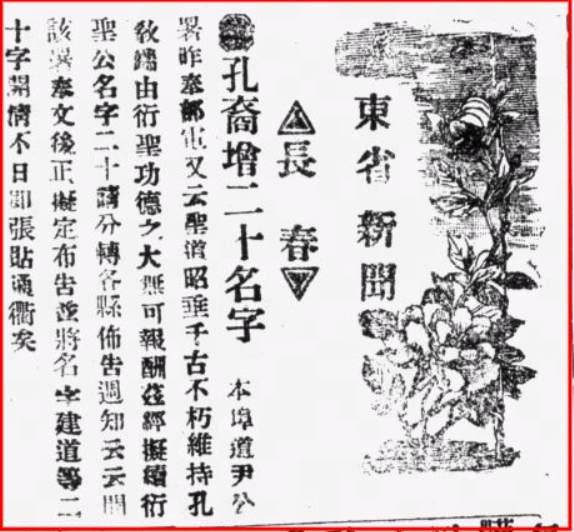 東省新聞
▲長春▼
孔裔增二十名字 本埠道尹公
署昨奉部電文云聖道昭垂千古不朽維持孔
教端由衍聖功德之大無可報酬茲經擬續衍
聖公名字二十請分轉各縣佈告週知云云聞
該署奉文後正擬定布告並將名字建道等二
十字開情不日即張貼通衢矣